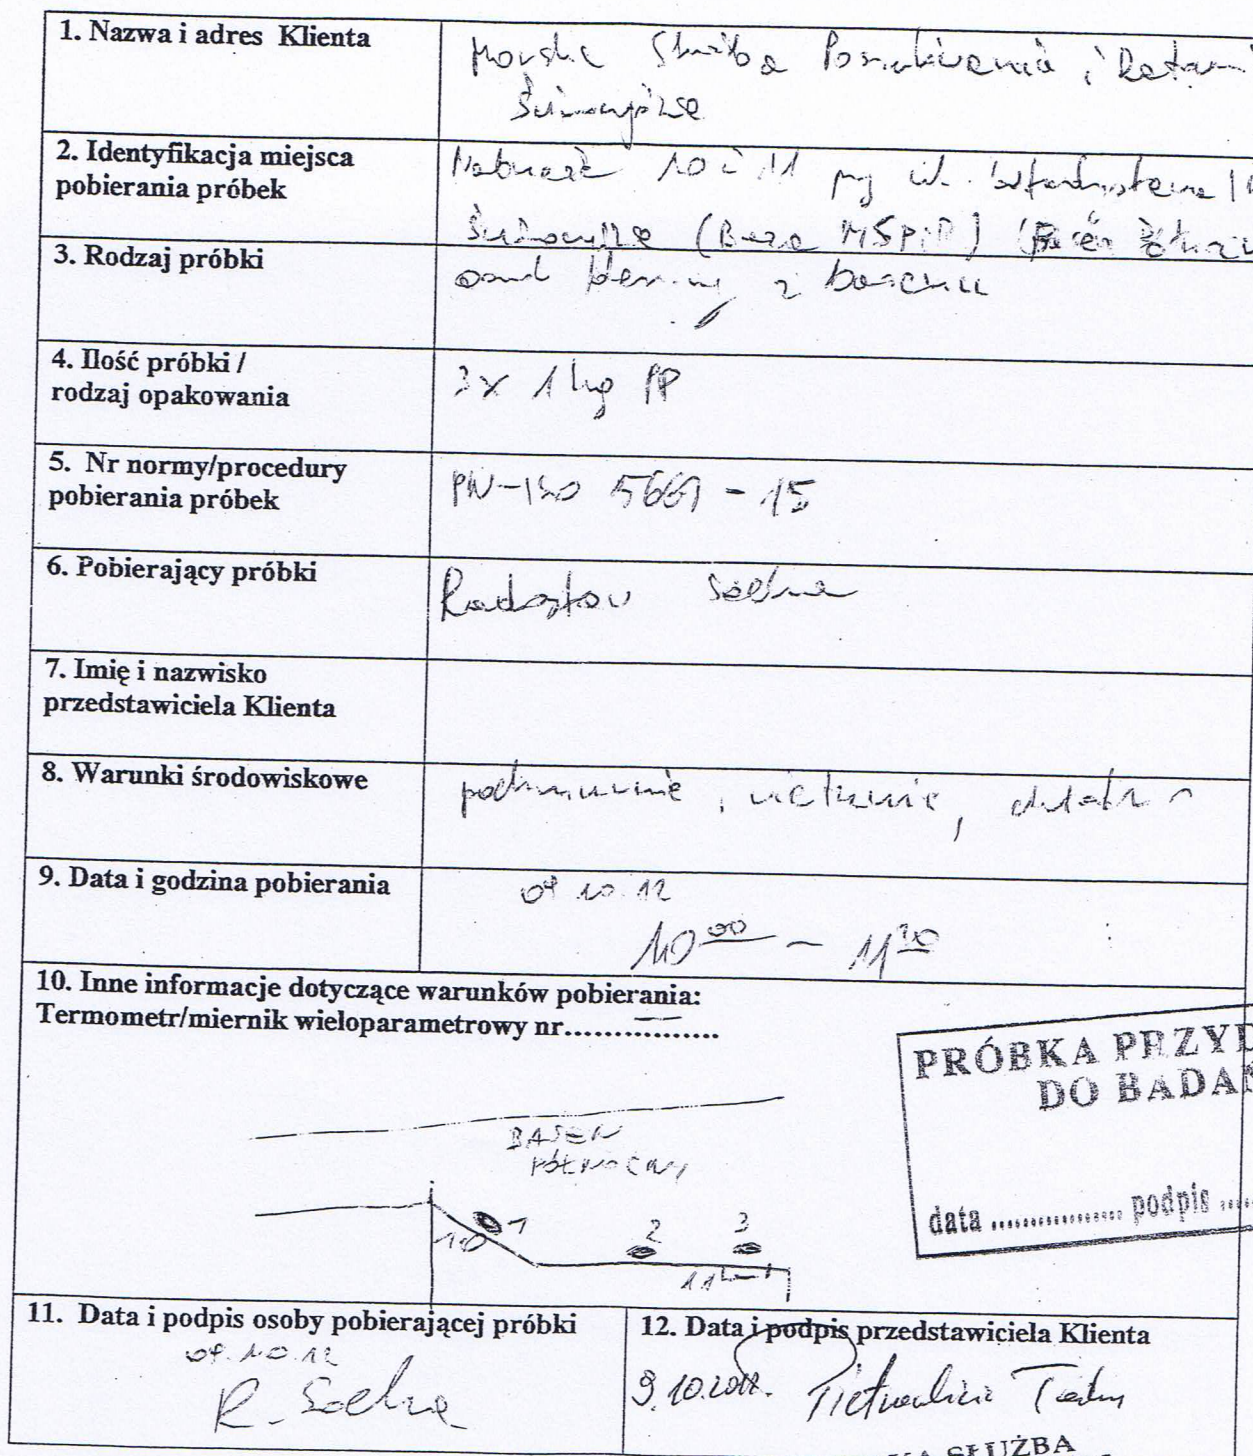 1. Nazwa i adres Klienta
Morska Służba Poszukiwania i Ratow
Świnoujście
2. Identyfikacja miejsca
pobierania próbek
Nabrzeże 10 i 11 przy ul.
Świnoujście (Baza MSPiR) (Basen
3. Rodzaj próbki
osad denny z basenu
4. Ilość próbki /
rodzaj opakowania
3 x 1 kg PP
5. Nr normy/procedury
pobierania próbek
PN-ISO 5667 - 15
6. Pobierający próbki
Radosław
7. Imię i nazwisko
przedstawiciela Klienta
8. Warunki środowiskowe
pochmurnie,
9. Data i godzina pobierania
09.10.12
10 00 - 11 30
10. Inne informacje dotyczące warunków pobierania:
Termometr/miernik wieloparametrowy nr................
BASEN
PÓŁNOCNY
1 2 3
10
11
PRÓBKA PRZYD
DO BADAŃ
data ................ podpis ......
11. Data i podpis osoby pobierającej próbki
09.10.12
R.
12. Data i podpis przedstawiciela Klienta
9.10.2012.
KA SŁUŻBA